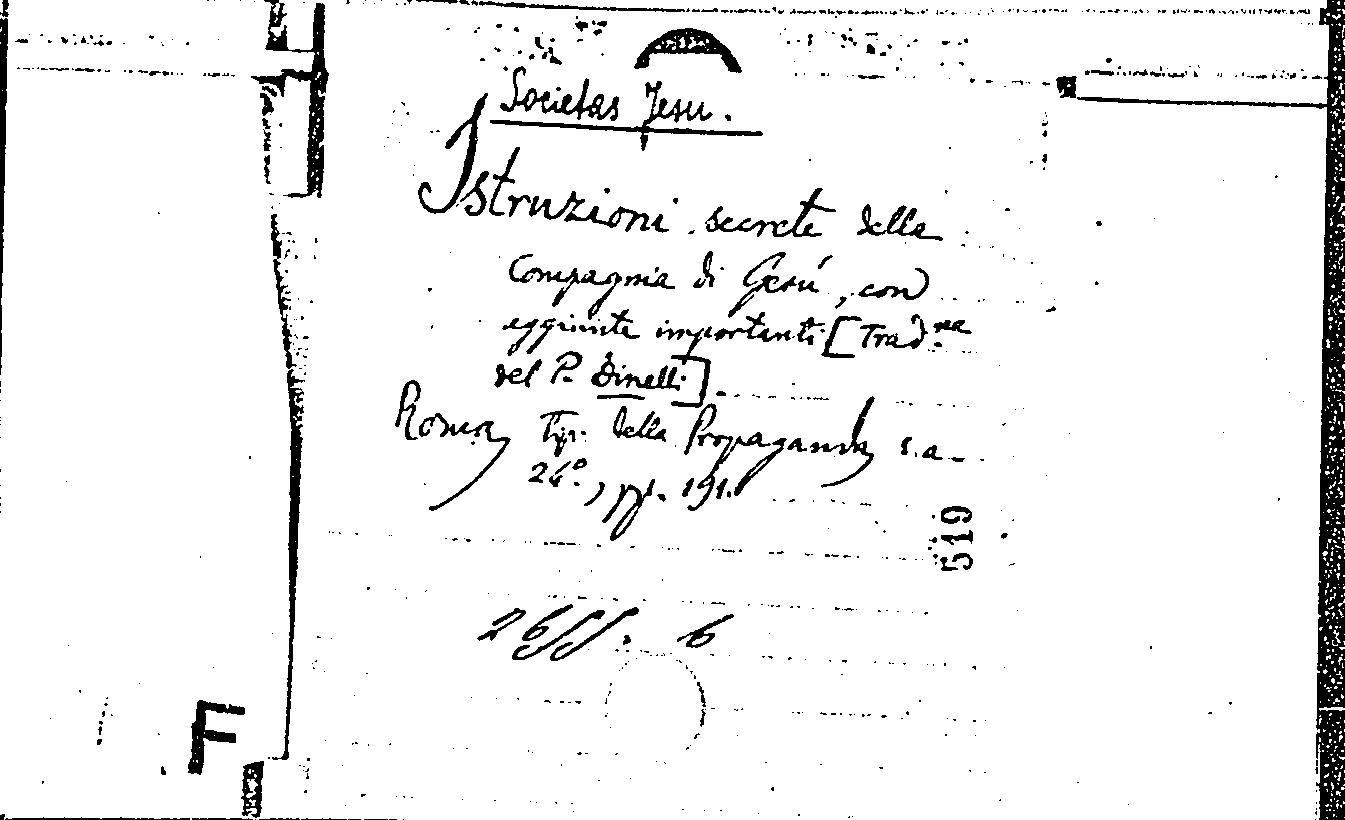 Societas Jesu.
Istruzioni secrete della
Compagnia di Gesú, con
aggiunte importanti [Trad.ne
del P. Dinelli].
Roma, Tip. della Propaganda s.a.
24°., pp. 191.
519
F